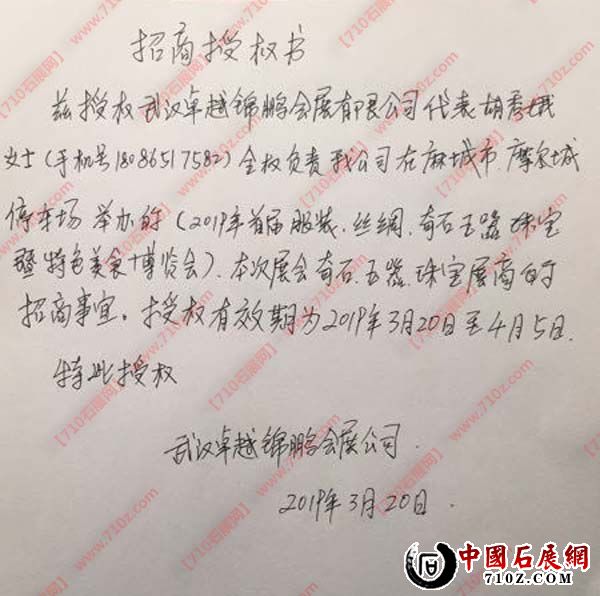 招商授权书
兹授权武汉卓越锦鹏会展有限公司代表胡秀娥
女士(手机号18086517582)全权负责我公司在麻城市.摩尔城
停车场举办的(2019年首届服装.丝绸.奇石玉器珠宝
暨特色美食博览会).本次展会奇石.玉器.珠宝展商的
招商事宜。授权有效期为2019年3月20日至4月5日.
特此授权
武汉卓越锦鹏会展公司.
2019年3月20日.
【710石展网】www.710z.com
中國石展網
710Z.COM